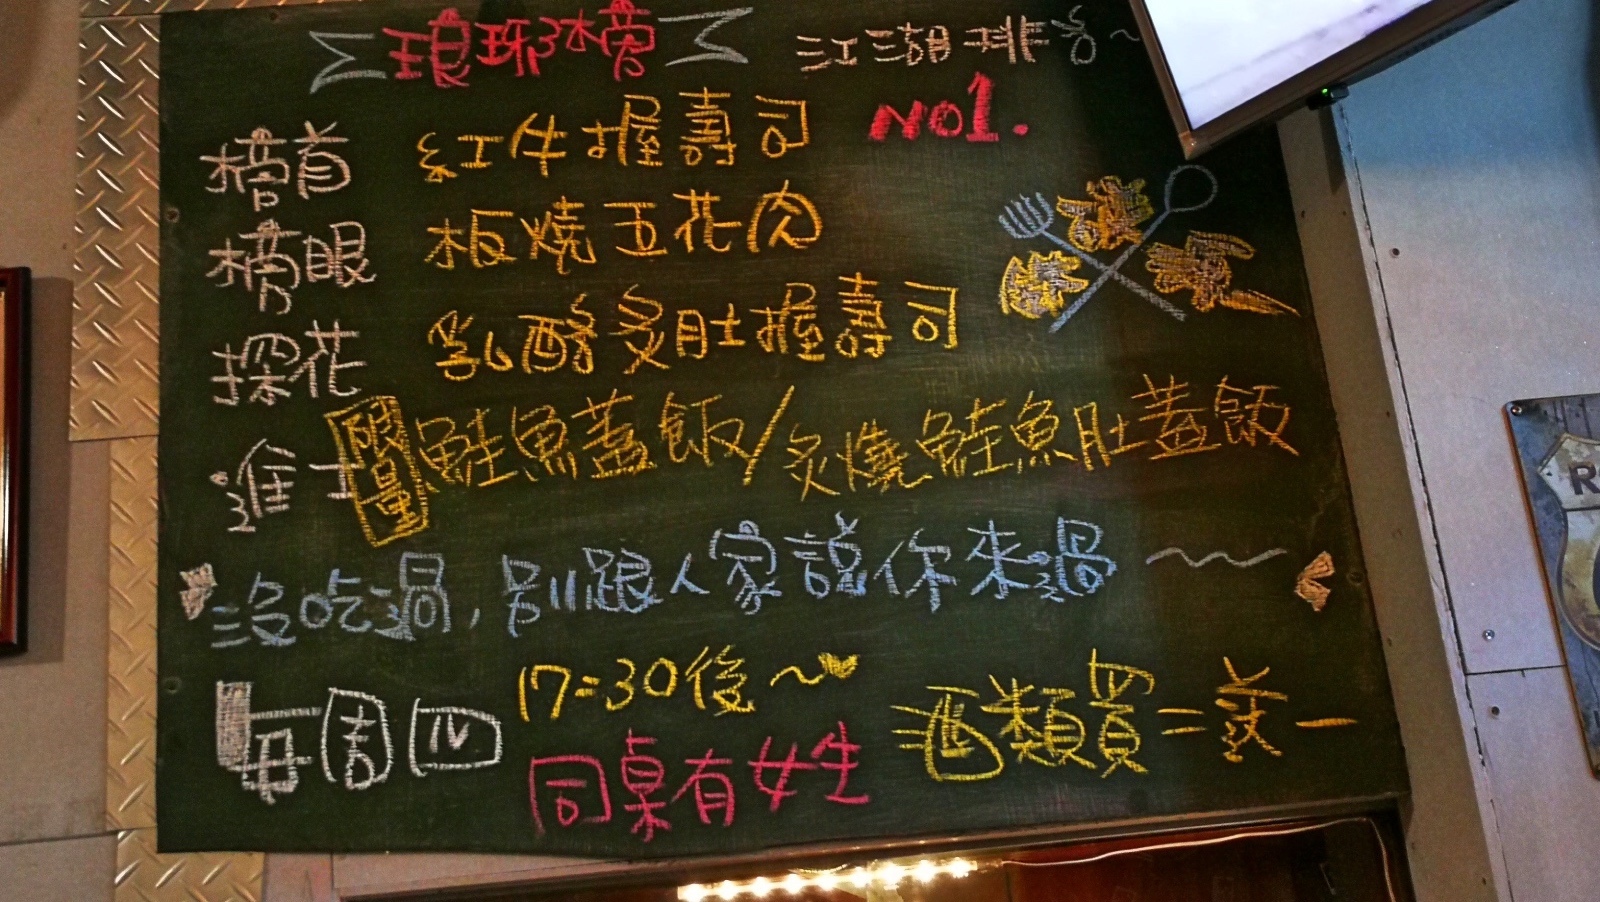 琅琊榜 江湖排名~
NO1.
榜首 紅牛握壽司
榜眼 板燒五花肉
探花 乳酪炙肚握壽司
進士 限量 鮭魚蓋飯/炙燒鮭魚肚蓋飯
沒吃過,別跟人家說你來過~
每周四 17:30後~
同桌有女生 酒類買二送一
R